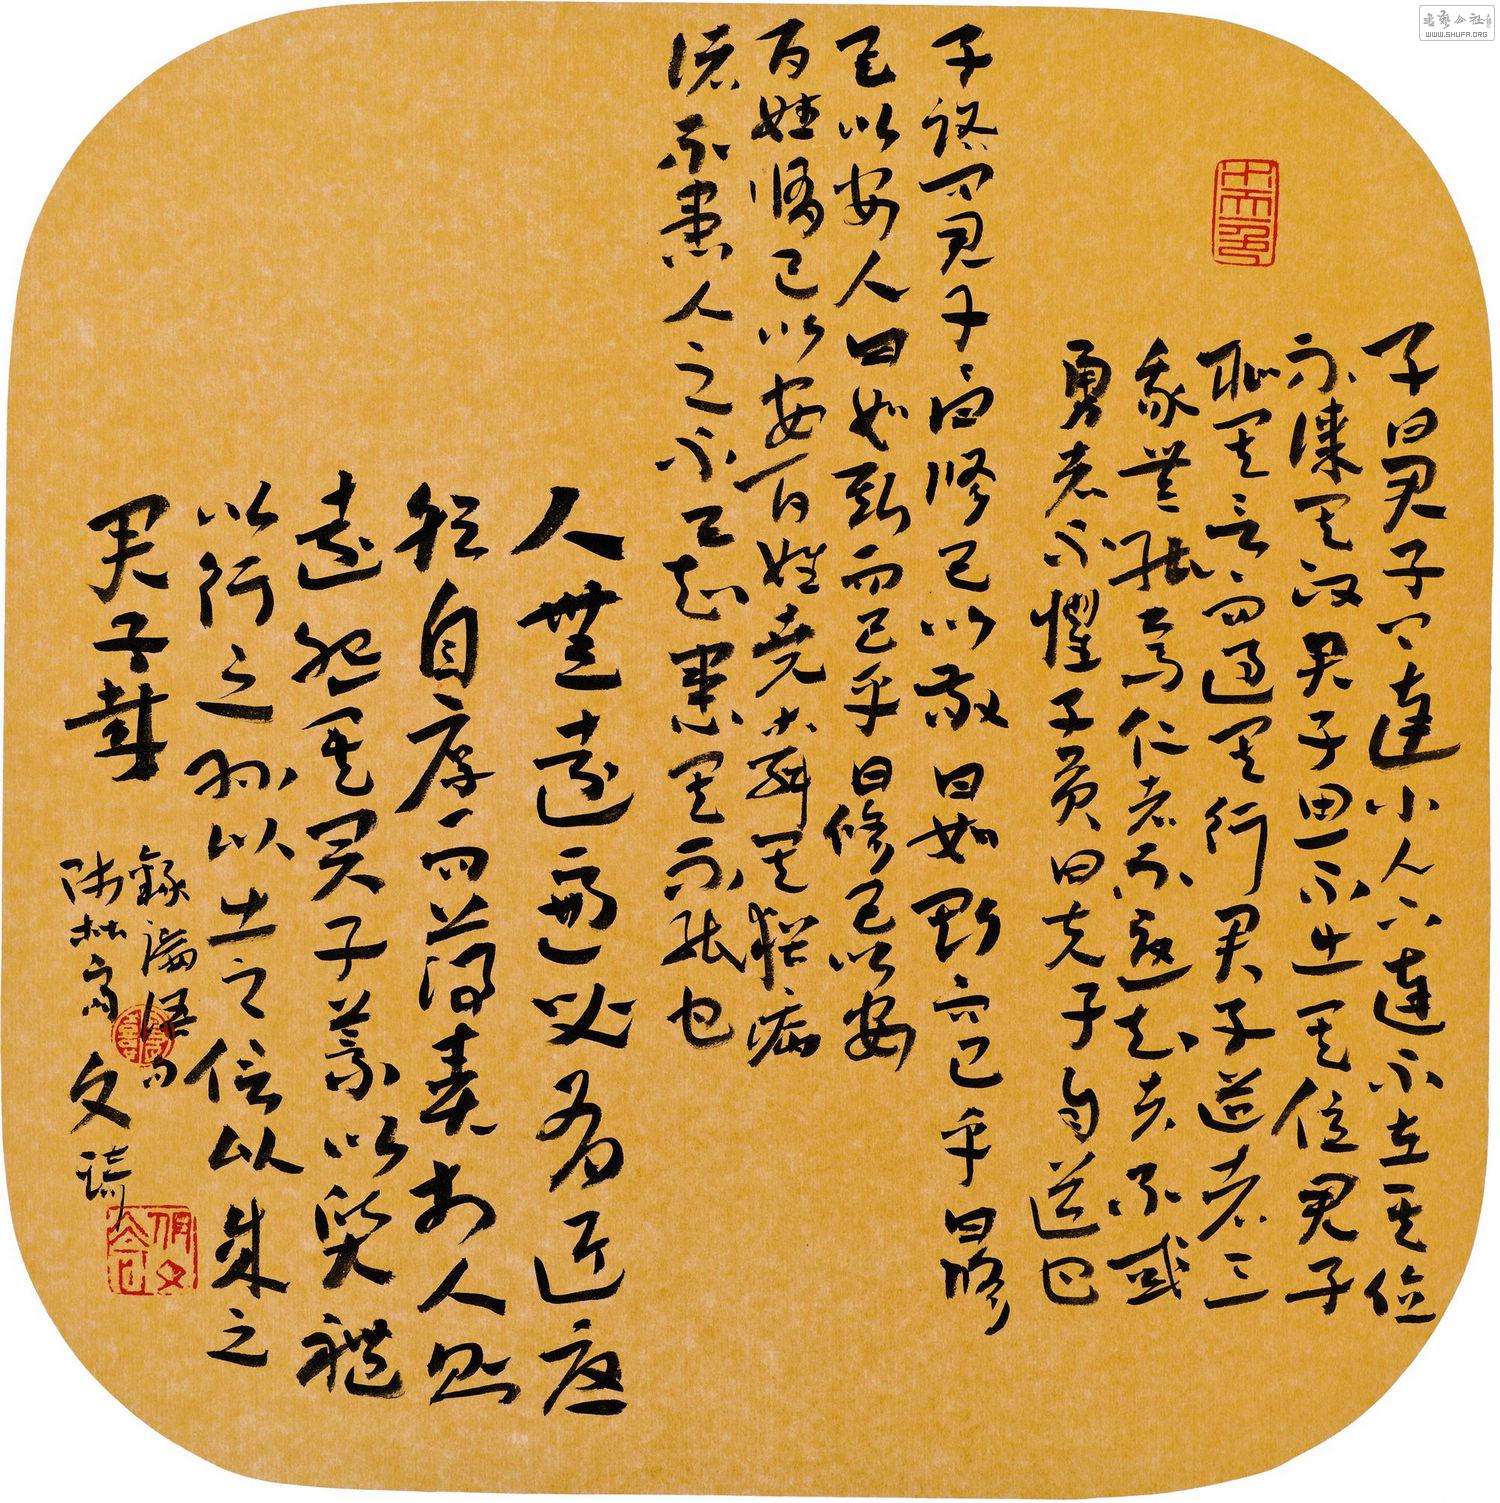 子曰君子上達小人下達不在其位
不謀其政君子思不出其位君子
恥其言而過其行君子道者三
我無能焉仁者不憂知者不惑
勇者不懼子貢曰夫子自道也
子路問君子子曰修己以敬曰如斯而已乎曰修
己以安人曰如斯而已乎曰修己以安
百姓修己以安百姓堯舜其猶病
諸不患人之不己知患其不能也
人無遠慮必有近憂
躬自厚而薄責於人則
遠怨矣君子義以為質禮
以行之孫以出之信以成之
君子哉
錄論語句
文
WWW.SHUFA.ORG